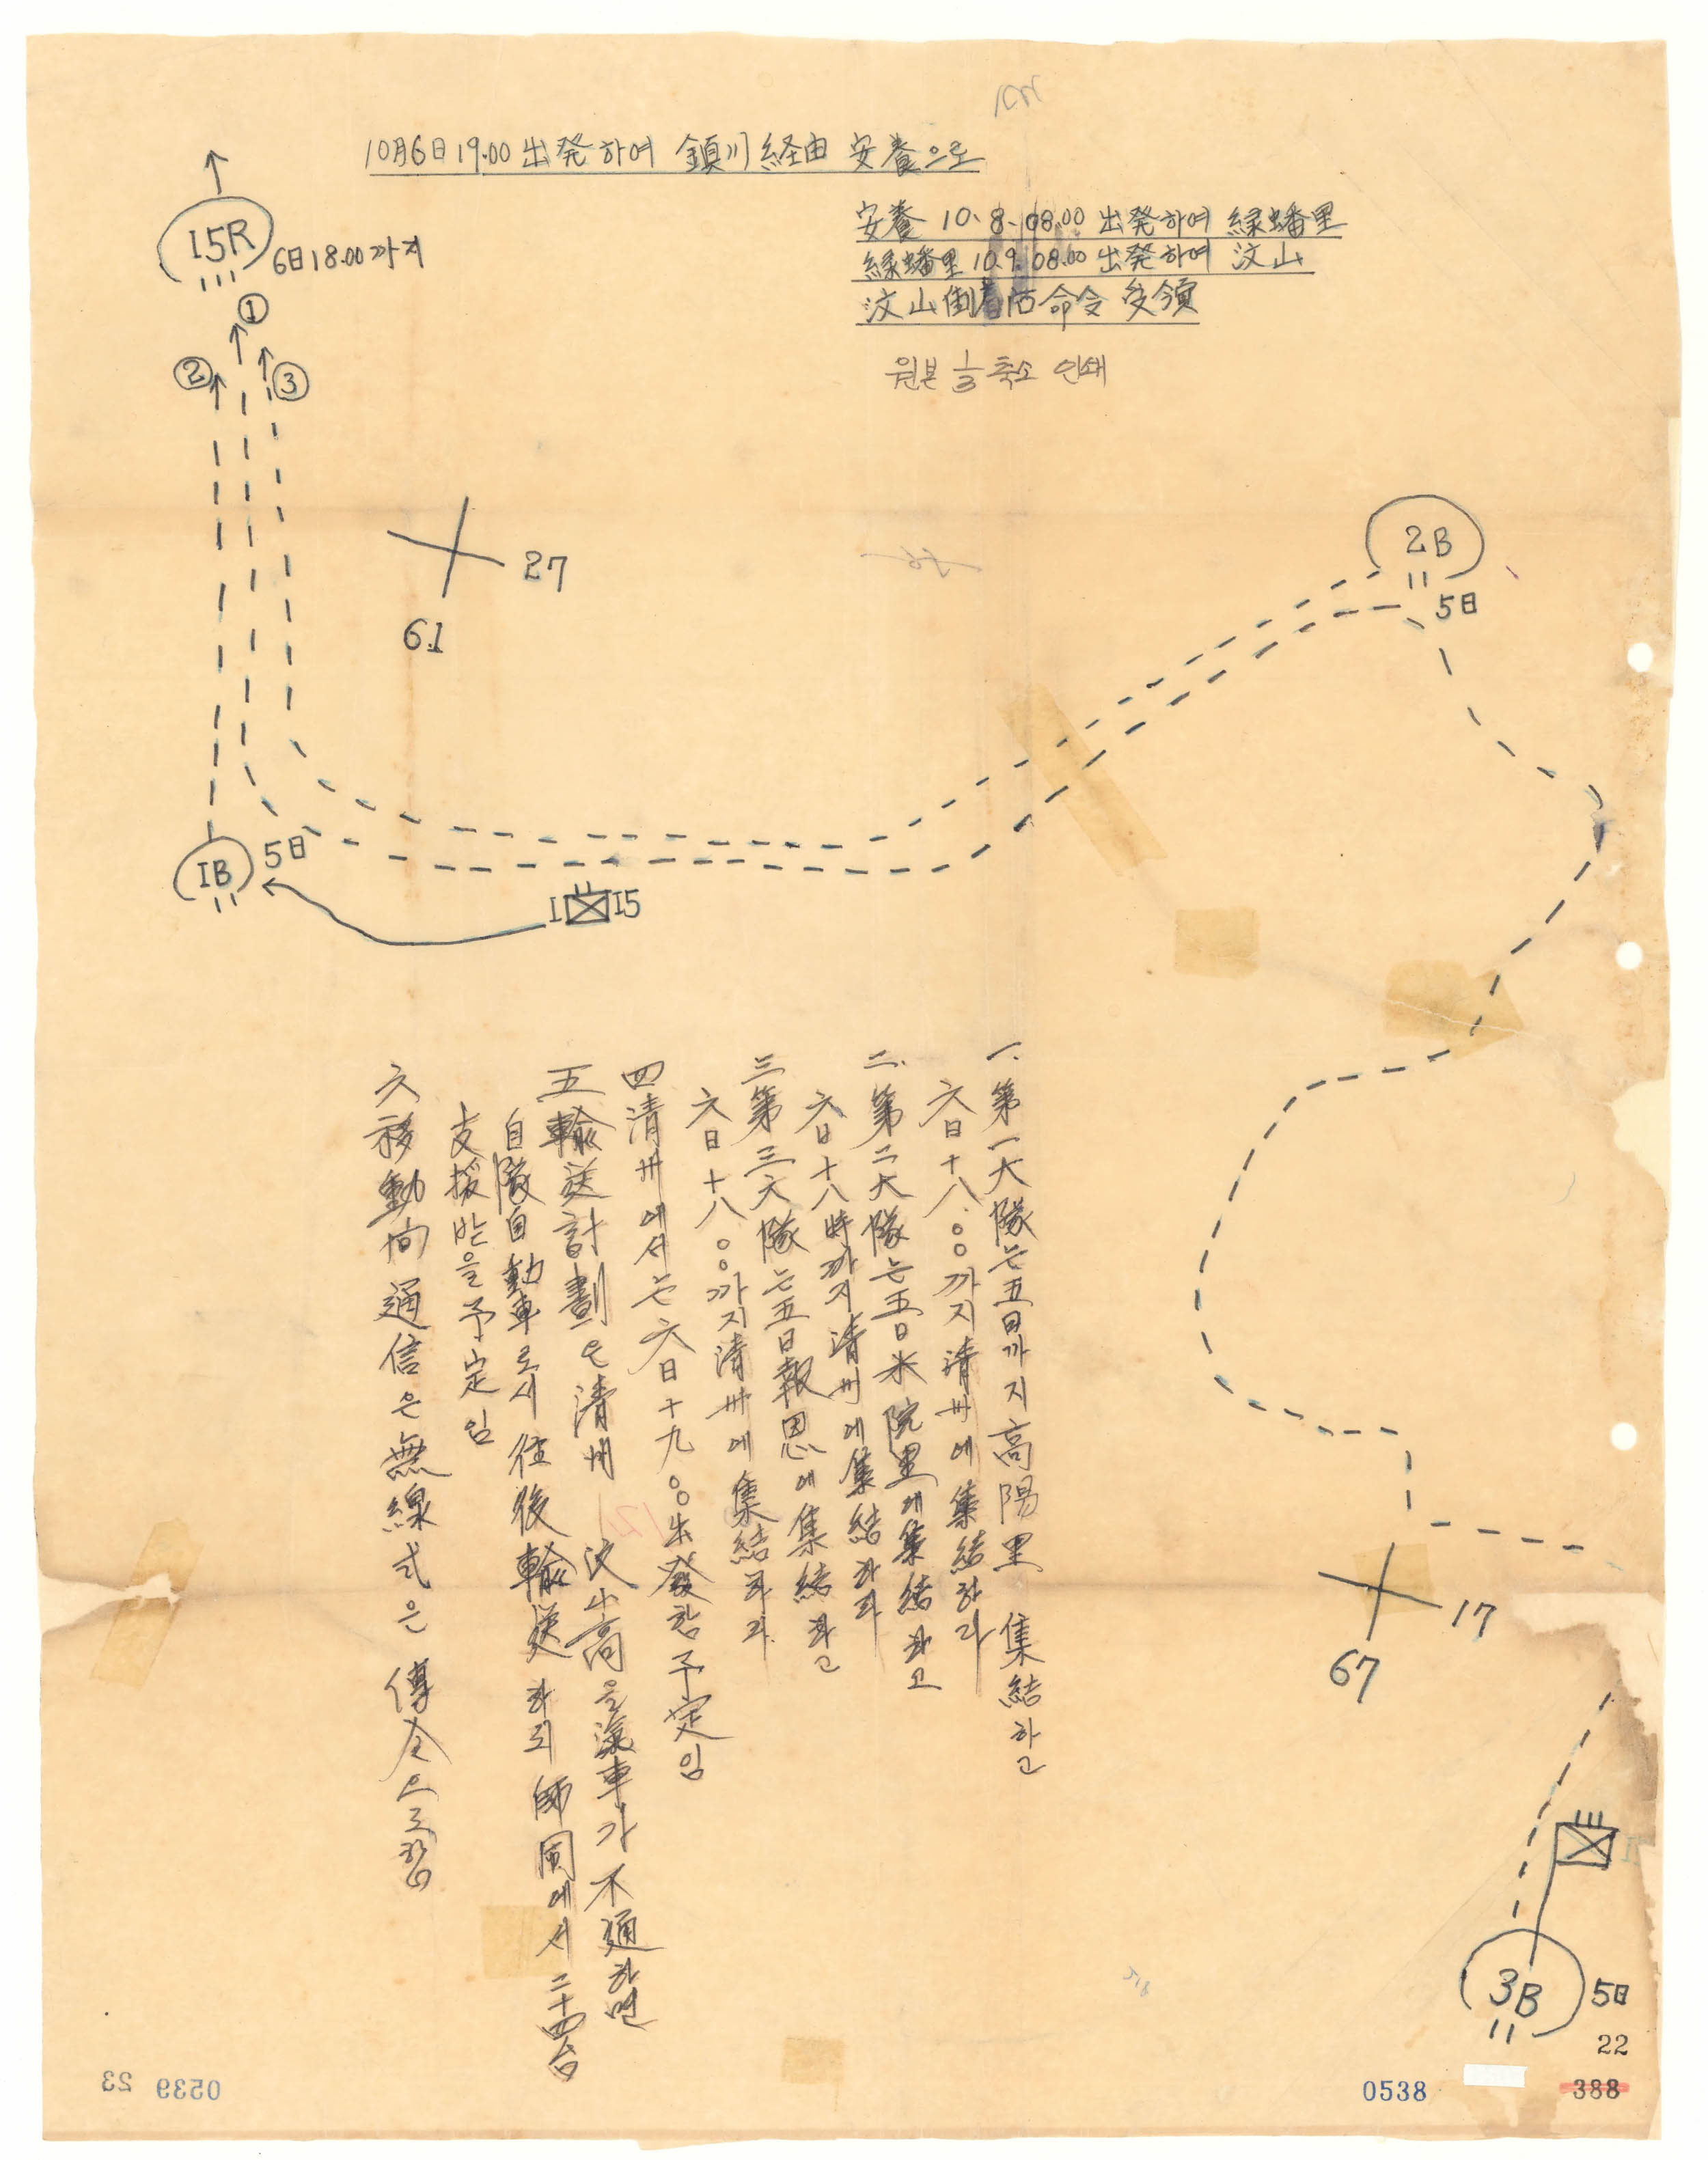 10月6日19.00 出発하여 鎮川経由 安養으로
安養 10.8.08.00 出発하여 緑蟠里
緑蟠里 10.9.08.00 出発하여 汶山
汶山倒着后命令 受領
원본 1/3 축소 인쇄
15R
6日18.00까지
①
②
③
27
61
2B
5日
1B
5日
I
15
一. 第一大隊는五日까지高陽里 集結하고
六日十八.〇〇까지清州에集結하라
二. 第二大隊는五日米院里에集結하고
六日十八時까지清州에集結하라
三 第三大隊는五日報恩에集結하고
六日十八.〇〇까지清州에集結하라.
四 清州에서는六日十九.〇〇出發할予定임
五 輸送計劃은清州 汶山高을漁車가不通하면
自隊自動車로서往後輸送하되師團에서二十四台
支援받을予定임
六 移動向通信은無線式은傳令으로함
17
67
3B
5日
22
0538
388
0539 23